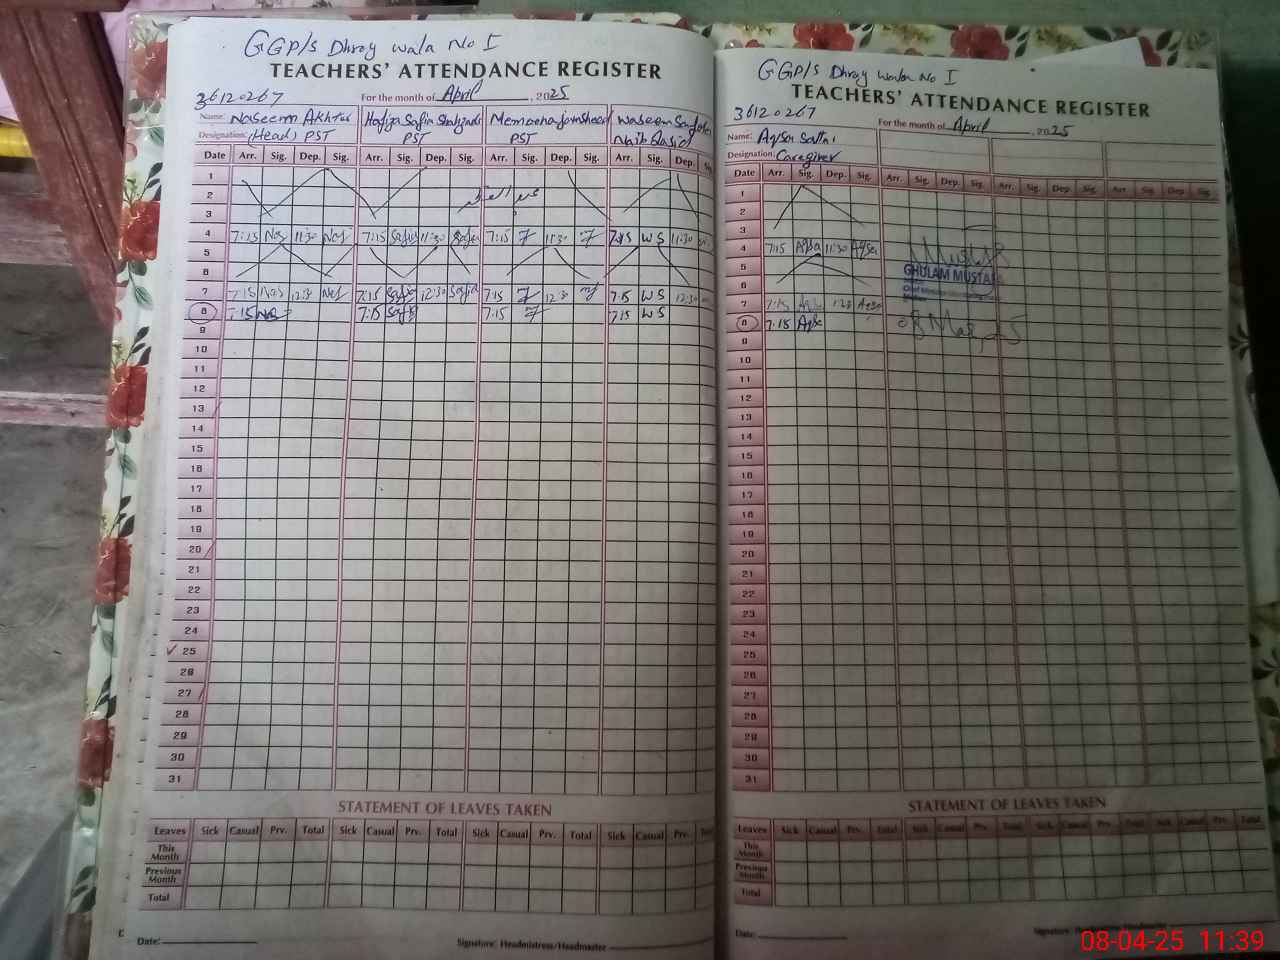 GGP/S Dhroy wala No I
TEACHERS' ATTENDANCE REGISTER
36120267 For the month of April, 2025
Name: Naseem Akhtar Hafiza Safia Memoona Waseem
Designation: (Head) PST PST PST Naib Qasid
Date Arr. Sig. Dep. Sig. Arr. Sig. Dep. Sig. Arr. Sig. Dep. Sig. Arr. Sig. Dep. Sig.
1
2
3
4 7:15 Nas 11:30 Nas 7:15 Safia 11:30 Safia 7:15 11:30 7:15 WS 11:30
5
6
7 7:15 Nas 12:30 Nas 7:15 Safia 12:30 Safia 7:15 12:30 7:15 WS 12:30
8 7:15 Nas 7:15 Safia 7:15 7:15 WS
9
10
11
12
13
14
15
16
17
18
19
20
21
22
23
24
25
26
27
28
29
30
31
STATEMENT OF LEAVES TAKEN
Leaves Sick Casual Prv. Total Sick Casual Prv. Total Sick Casual Prv. Total Sick Casual Prv. Total
This Month
Previous Month
Total
Date: Signature: Headmistress/Headmaster
GGP/S Dhroy wala No I
TEACHERS' ATTENDANCE REGISTER
36120267 For the month of April, 2025
Name: Aqsa
Designation: Caregiver
Date Arr. Sig. Dep. Sig. Arr. Sig. Dep. Sig. Arr. Sig. Dep. Sig. Arr. Sig. Dep. Sig.
1
2
3
4 7:15 Aqsa 11:30 Aqsa
5
GHULAM MUSTAFA
6
7 7:15 Aqsa Aqsa
8 7:15 Aqsa
9
10
11
12
13
14
15
16
17
18
19
20
21
22
23
24
25
26
27
28
29
30
31
STATEMENT OF LEAVES TAKEN
Leaves Sick Casual Prv. Total Sick Casual Prv. Total Sick Casual Prv. Total Sick Casual Prv. Total
This Month
Previous Month
Total
Date: Signature:
08-04-25 11:39